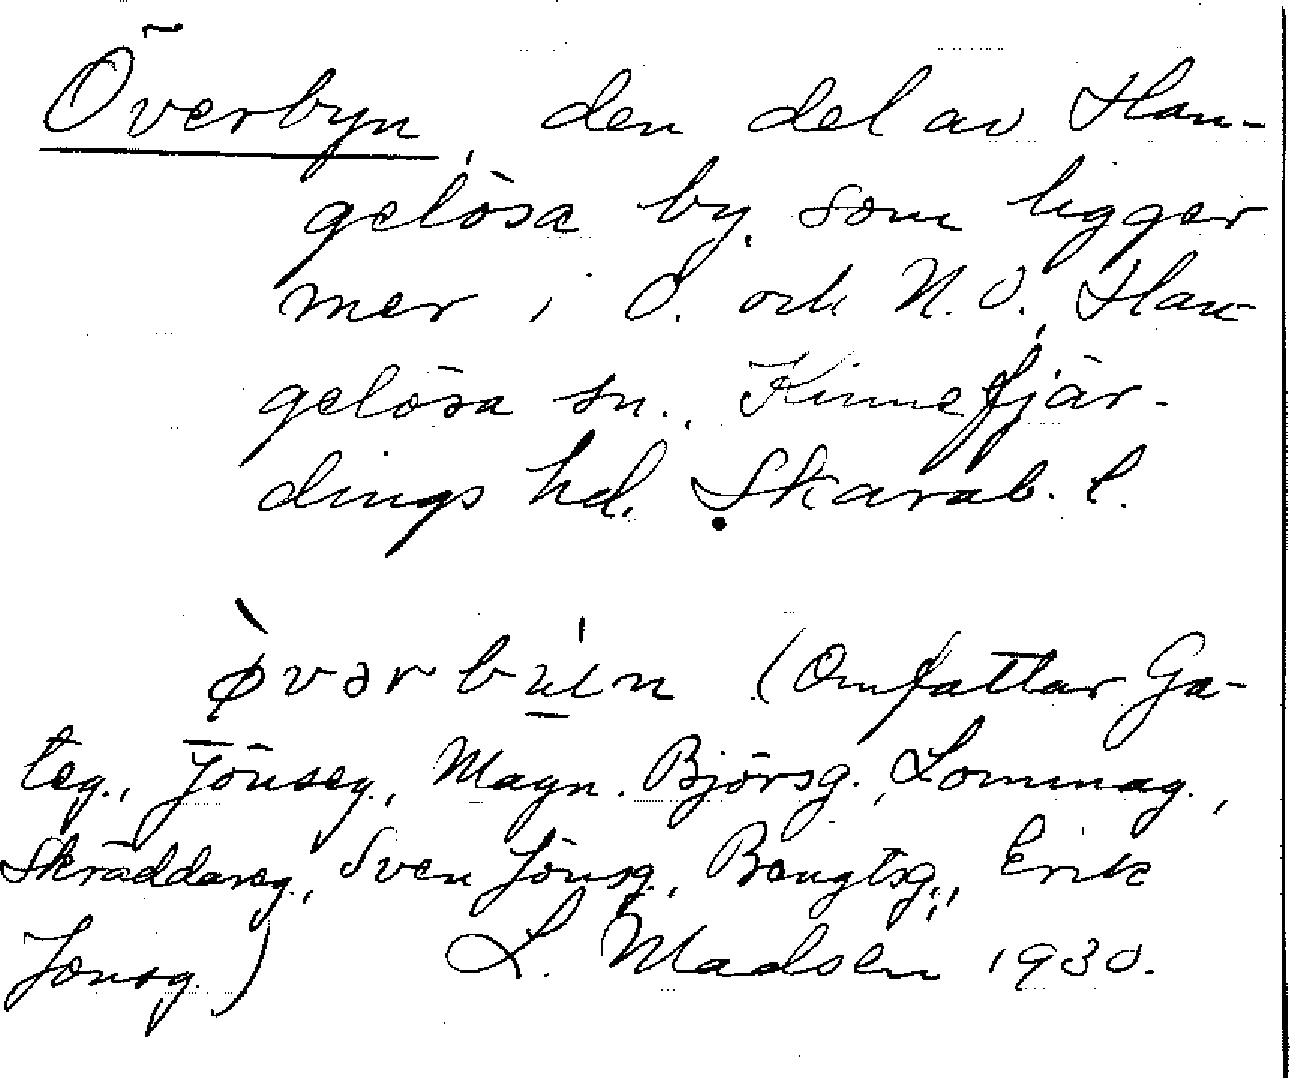 Överbyn, den del av Han-
gelösa by, som ligger
mer i Ö. och N.O. Han-
gelösa sn., Kinnefjär-
dings hd. Skarab. l.
(Omfattar Ga-
teg., Jönseg., Magn. Björsg., Lommag.,
Skräddareg., Sven Jönsg., Bengtsg., Erik
Jönsg.) L. Madsén 1930.